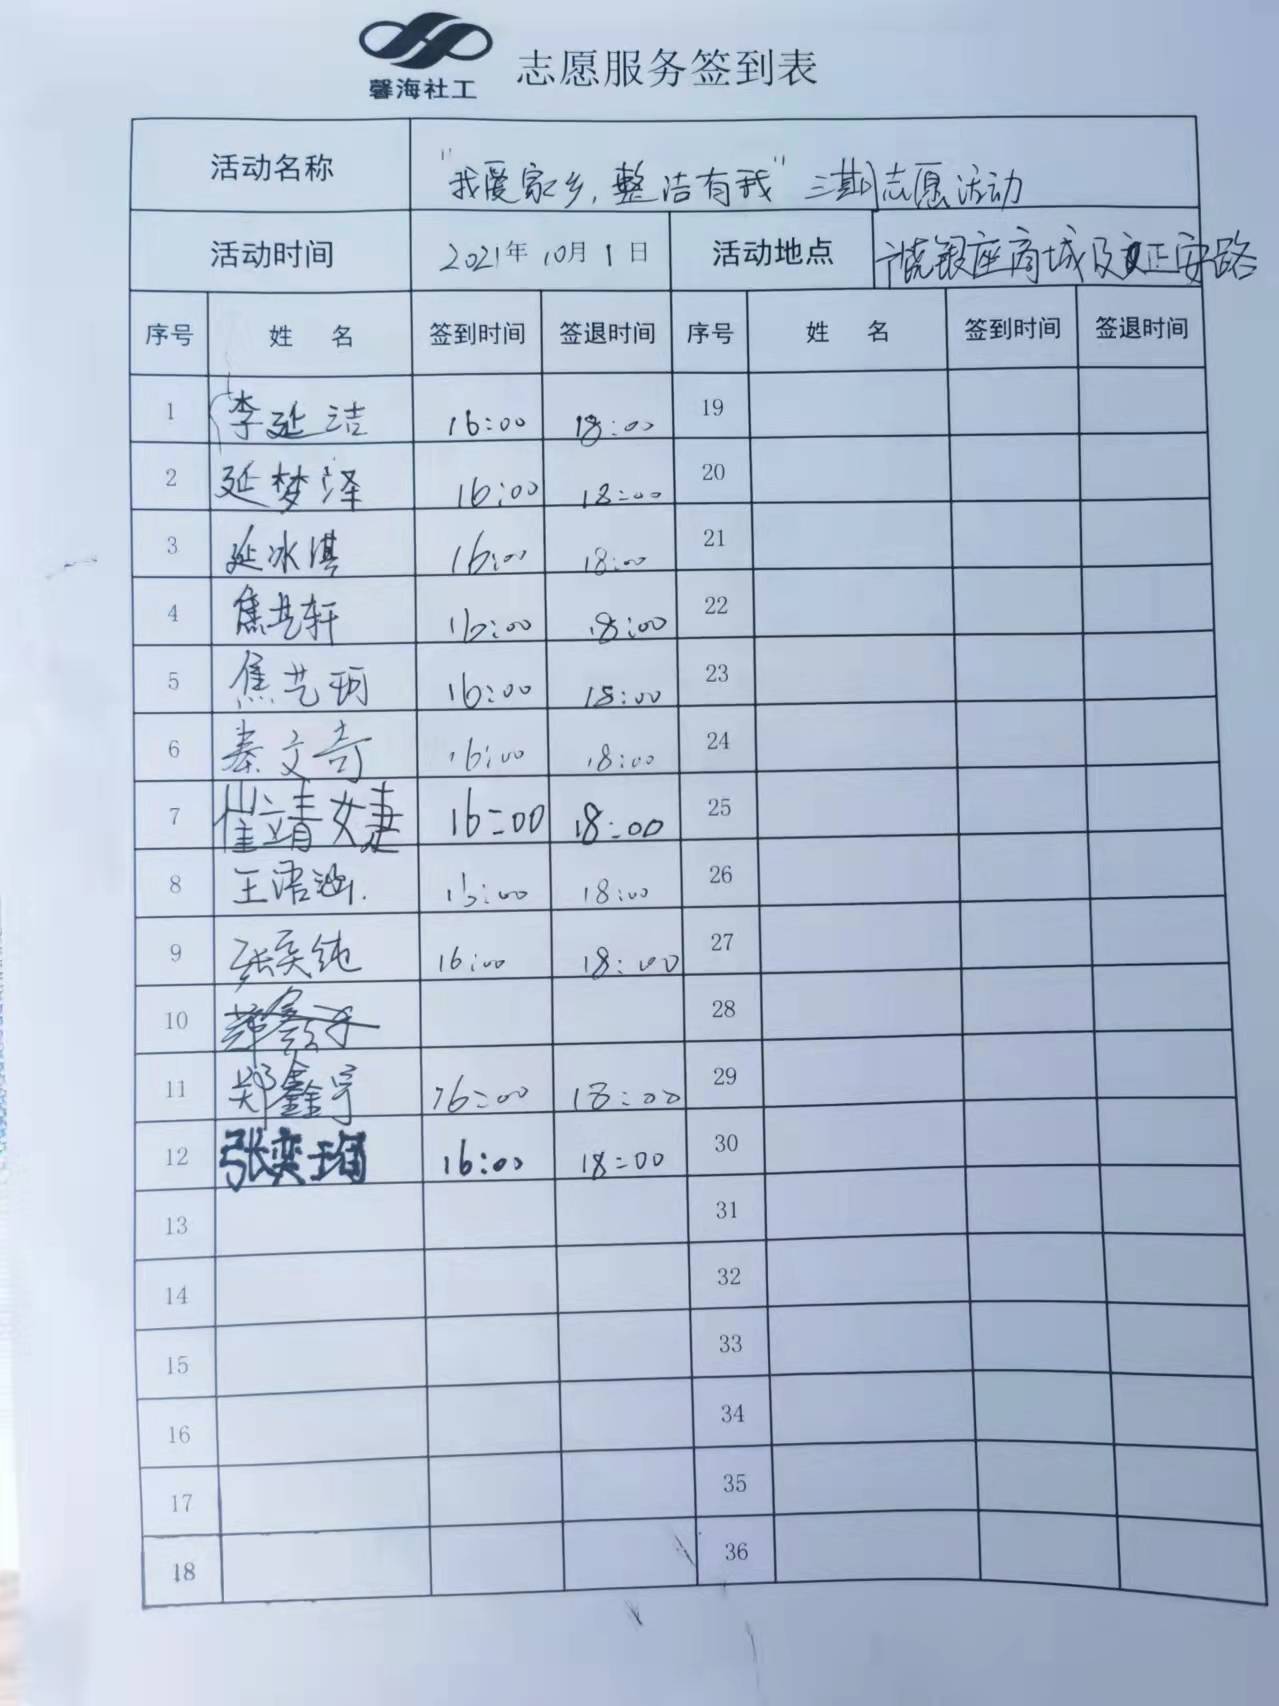 馨海社工
志愿服务签到表
活动名称 "我爱家乡,整洁有我"三期志愿活动
活动时间 2021年10月1日 活动地点 广饶银座商城及正安路
序号 姓 名 签到时间 签退时间 序号 姓 名 签到时间 签退时间
1 李延洁 16:00 18:00 19
2 延梦泽 16:00 18:00 20
3 延冰淇 16:00 18:00 21
4 焦艺轩 16:00 18:00 22
5 焦艺珂 16:00 18:00 23
6 秦文奇 16:00 18:00 24
7 崔靖婕 16:00 18:00 25
8 王语涵 16:00 18:00 26
9 张奕纯 16:00 18:00 27
10 28
11 郑鑫宇 16:00 18:00 29
12 张奕瑄 16:00 18:00 30
13 31
14 32
15 33
16 34
17 35
18 36